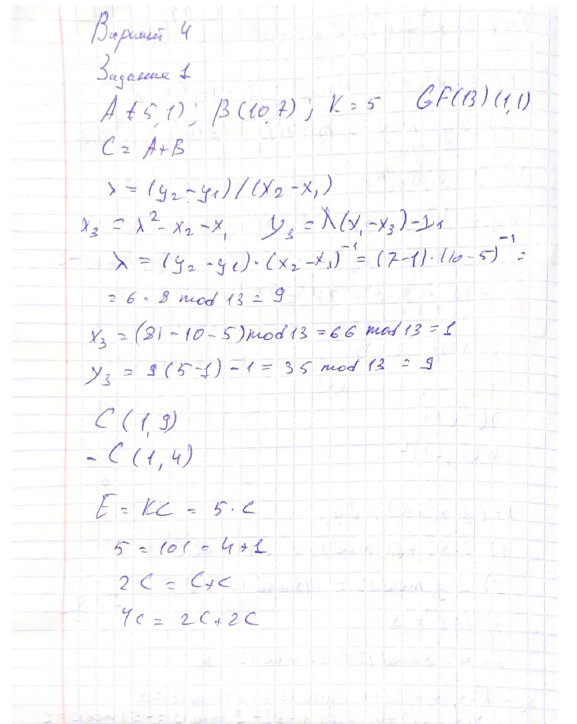 Вариант 4
Задание 1
A(5,1); B(10,7); K=5 GF(13)(1,1)
C = A+B
λ = (y₂-y₁)/(x₂-x₁)
x₃ = λ²-x₂-x₁ y₃ = λ(x₁-x₃)-y₁
λ = (y₂-y₁)·(x₂-x₁)⁻¹ = (7-1)·(10-5)⁻¹ =
= 6·8 mod 13 = 9
x₃ = (81-10-5) mod 13 = 66 mod 13 = 1
y₃ = 9(5-1)-1 = 35 mod 13 = 9
C(1,9)
-C(1,4)
E = KC = 5·C
5 = 101 = 4+1
2C = C+C
4C = 2C+2C